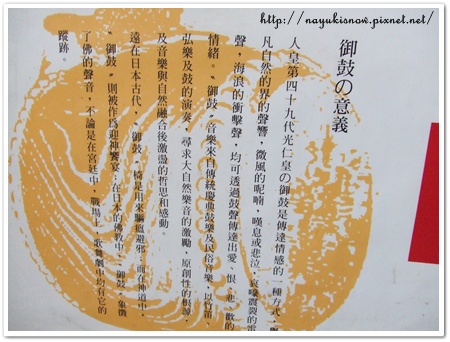 http://nayukisnow.pixnet.net/
御鼓の意義
人皇第四十九代光仁皇の御鼓是傳達情感的一種方式，
凡自然的界的聲響，微風的呢喃，嘆息或悲泣，哀嚎震裂的雷
聲，海浪的衝擊聲，均可透過鼓聲傳達出愛、恨、悲、歡的
情緒。﹁御鼓﹂音樂來自傳統慶典鼓樂及民俗音樂，以竹笛、
弘樂及鼓的演奏，尋求大自然樂音的激勵，原創性的根源，
及音樂與自然融合後激盪的哲思和感動。
遠在日本古代，﹁御鼓﹂椅是用來驅瘟避邪；而在神道中，
﹁御鼓﹂則被作為迎神饗宴；在日本的佛教中，﹁御鼓﹂象徵
了佛的聲音，不論是在宮廷中，戰場上，歌舞劇中均有它的
蹤跡。